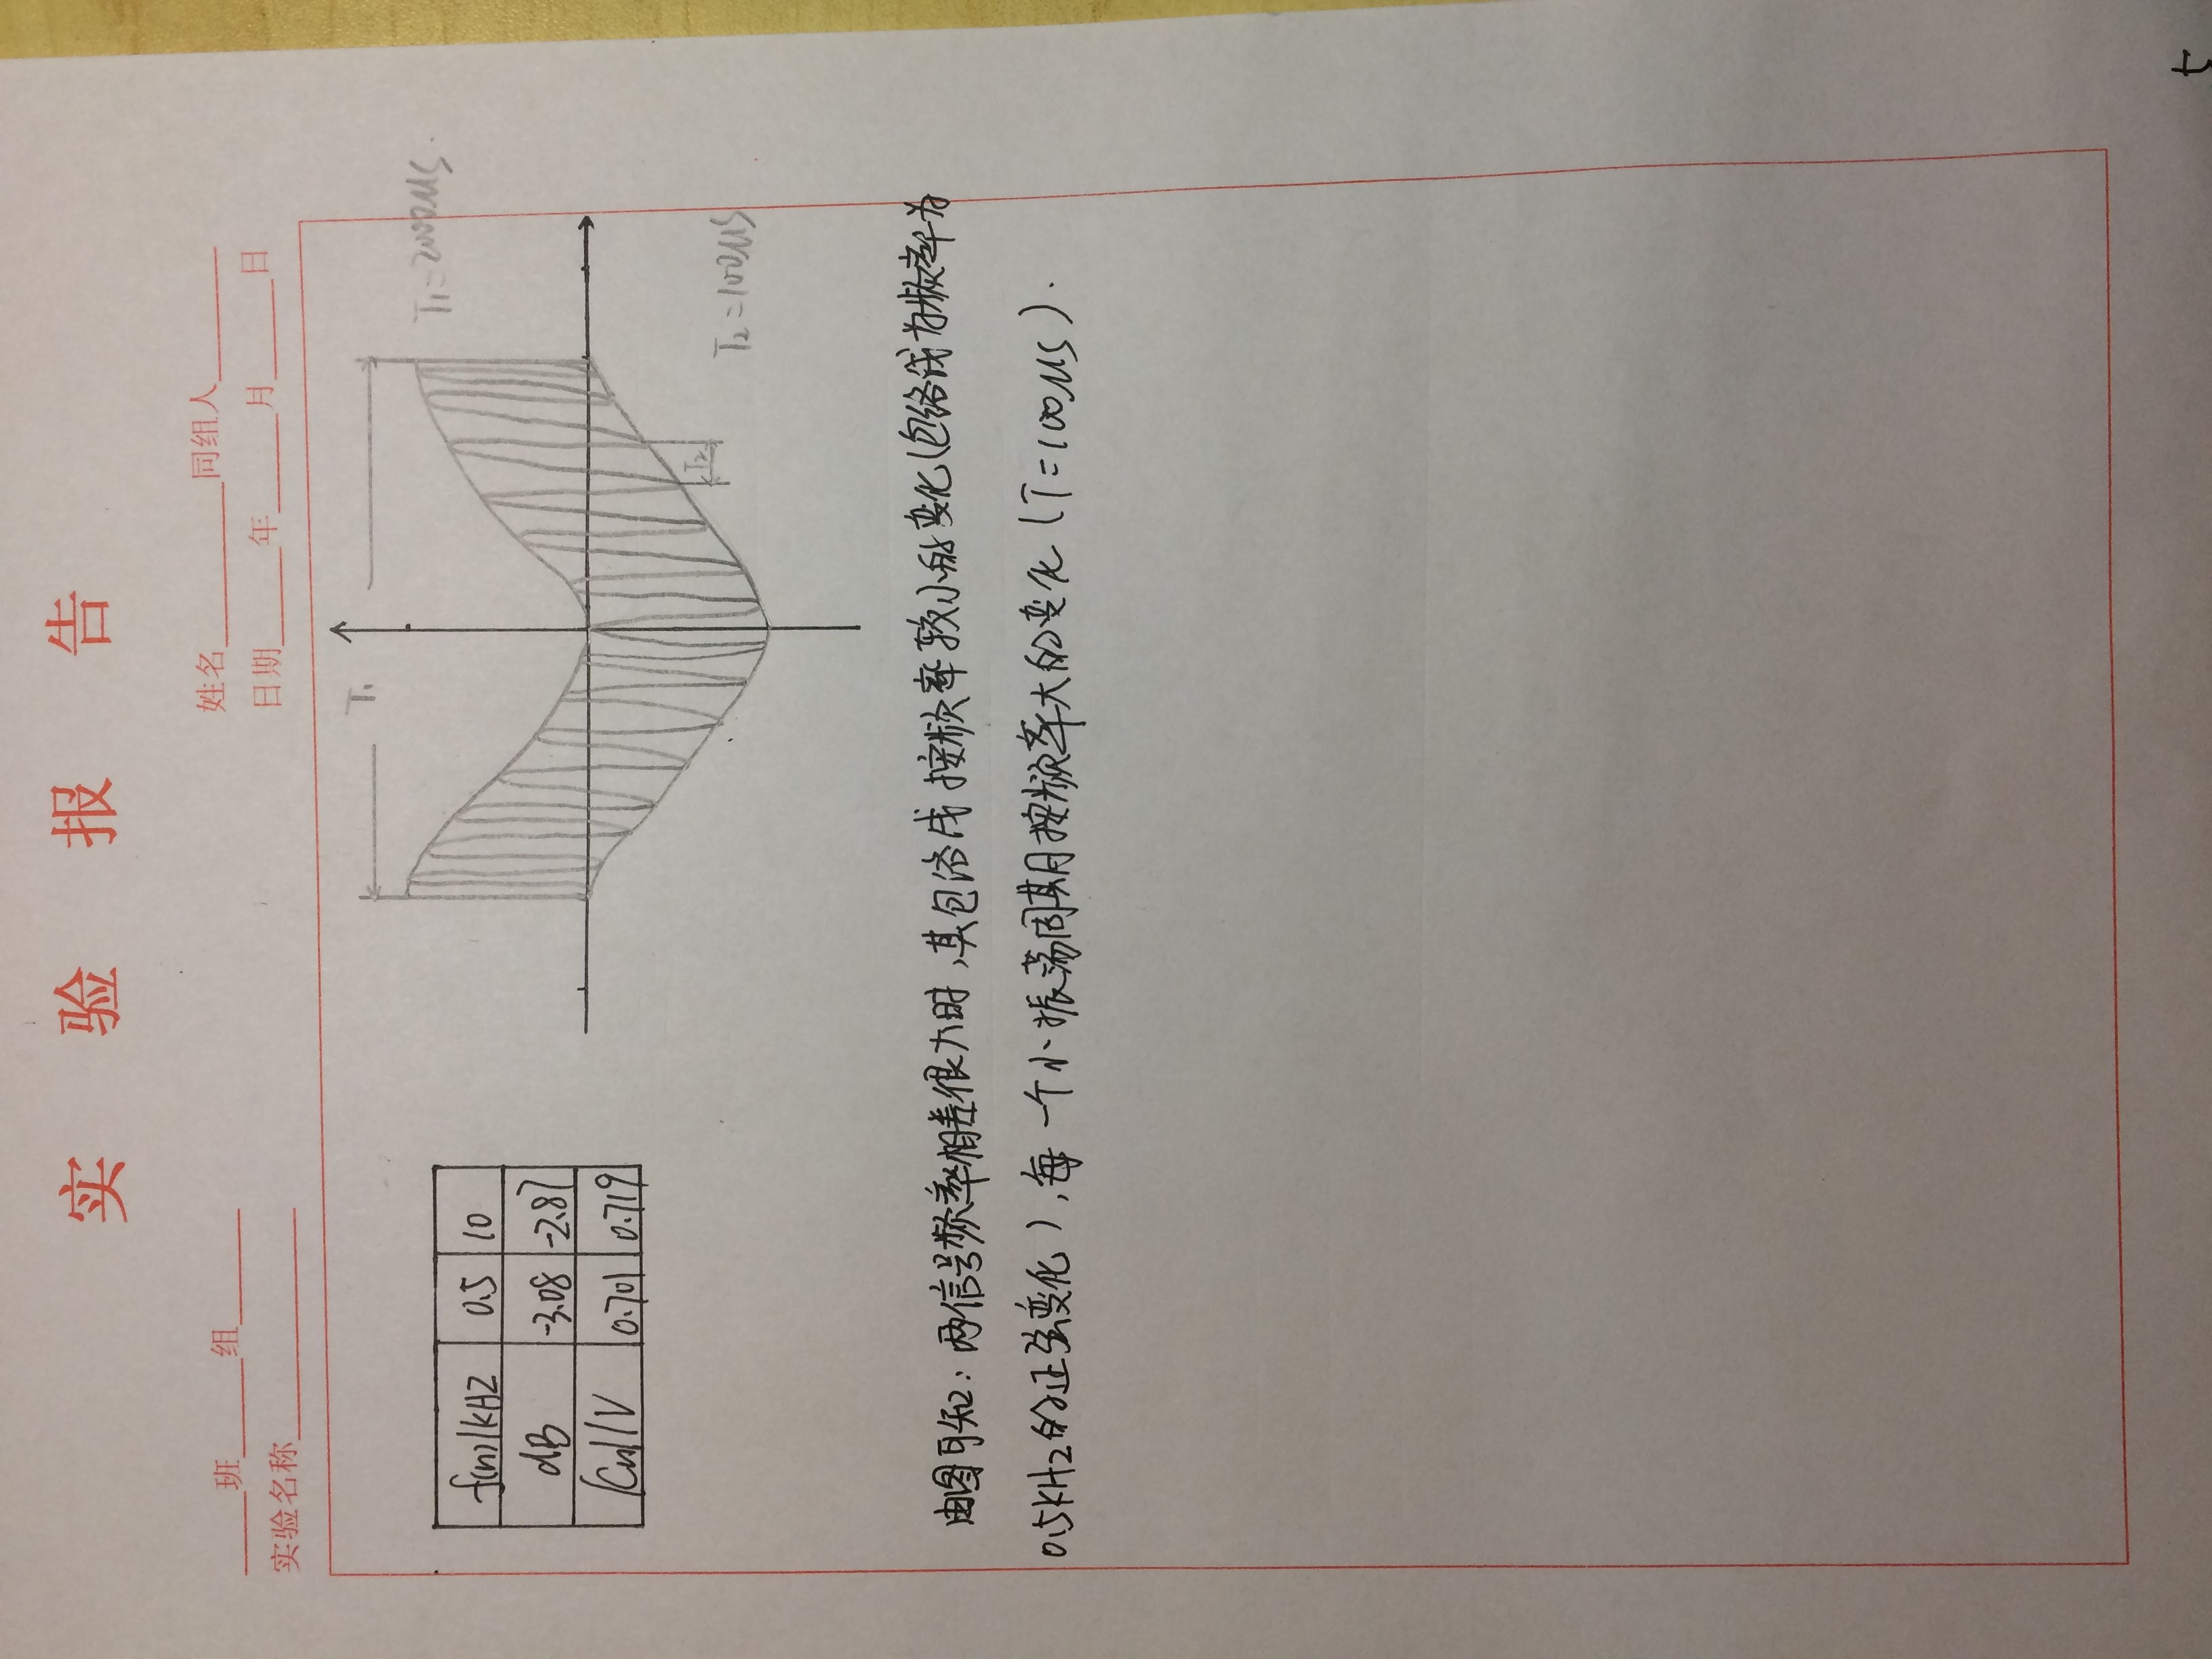 实验报告
班 组
姓名 同组人
实验名称
日期 年 月 日
T₁
T₁=2000μs.
f(n)/kHz 0.5 10
dB -3.08 -2.87
|Cn|/V 0.701 0.719
T₂
T₂=100μs
由图可知：两信号频率相差很大时，其包络线按频率较小的变化(包络线为频率为
0.5kHz的正弦变化），每一个小振荡周期按频率大的变化（T=100μs）.
5